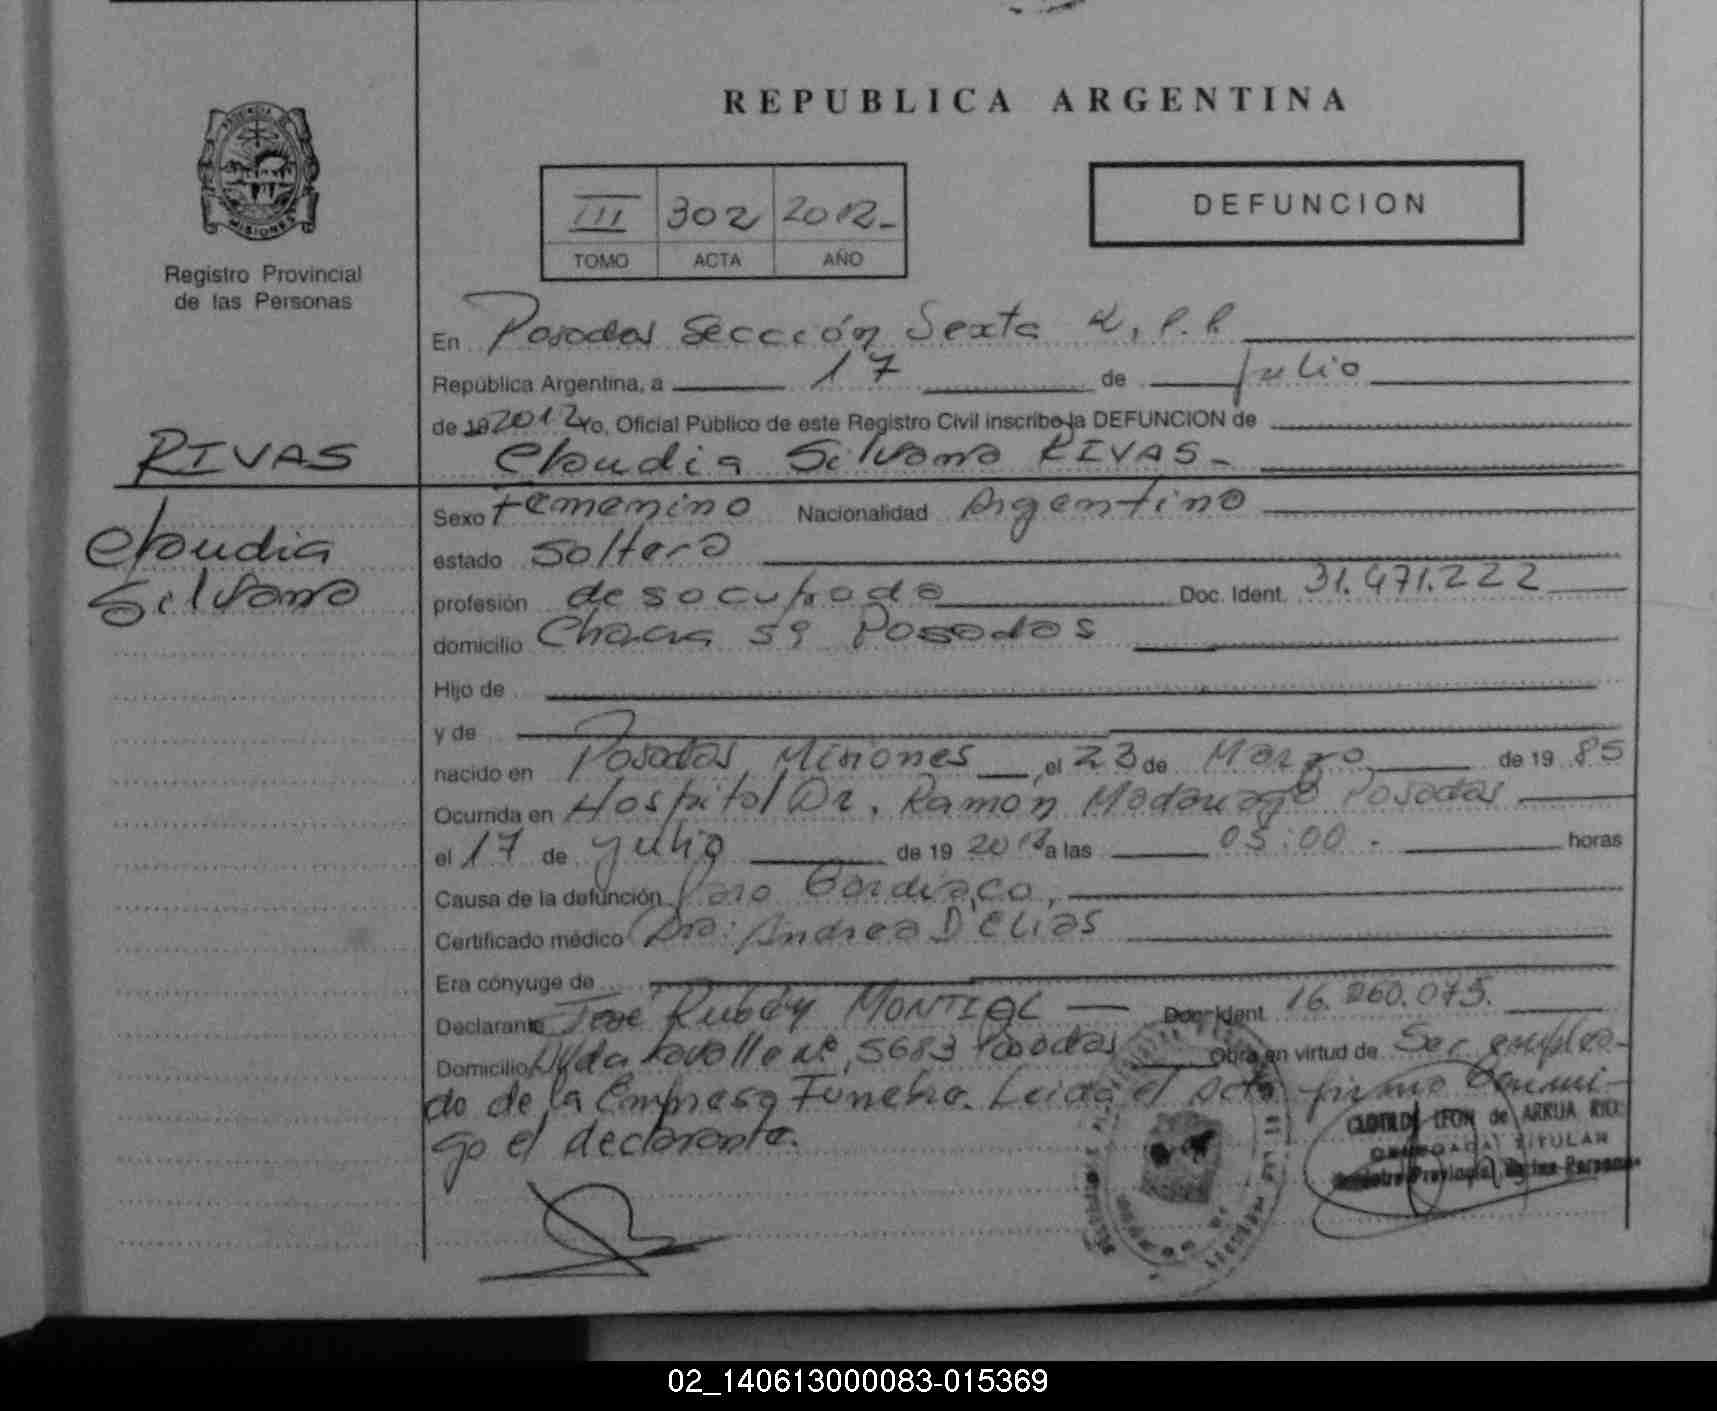 REPUBLICA ARGENTINA
PROVINCIA DE
MISIONES
Registro Provincial
de las Personas
III 302 2012-
TOMO ACTA AÑO
DEFUNCION
En Posadas Sección Sexta
República Argentina, a 17 de julio
de 19 2012 Yo, Oficial Público de este Registro Civil inscribo la DEFUNCION de
Claudia Silvana RIVAS-
RIVAS
Claudia
Silvana
Sexo Femenino Nacionalidad Argentina
estado Soltera
profesión desocupada Doc. Ident. 31.471.222
domicilio Chacra 59 Posadas
Hijo de
y de
nacido en Posadas Misiones, el 23 de Marzo de 19 85
Ocurrida en Hospital Dr. Ramón Madariaga Posadas
el 17 de julio de 19 2012 a las 05:00- horas
Causa de la defunción Paro Cardiaco,
Certificado médico Dra: Andrea D'Elias
Era cónyuge de
Declarante José Rubén MONTIEL Doc. Ident. 16.260.075.
Domicilio Avda Lavalle Nº 5683 Posadas Obra en virtud de Ser emplea-
do de la Empresa Fúnebre. Leida el acta firma conmi-
go el declarante.
LEON de ARRUA
TITULAR
Registro Provincial de las Personas
02_140613000083-015369